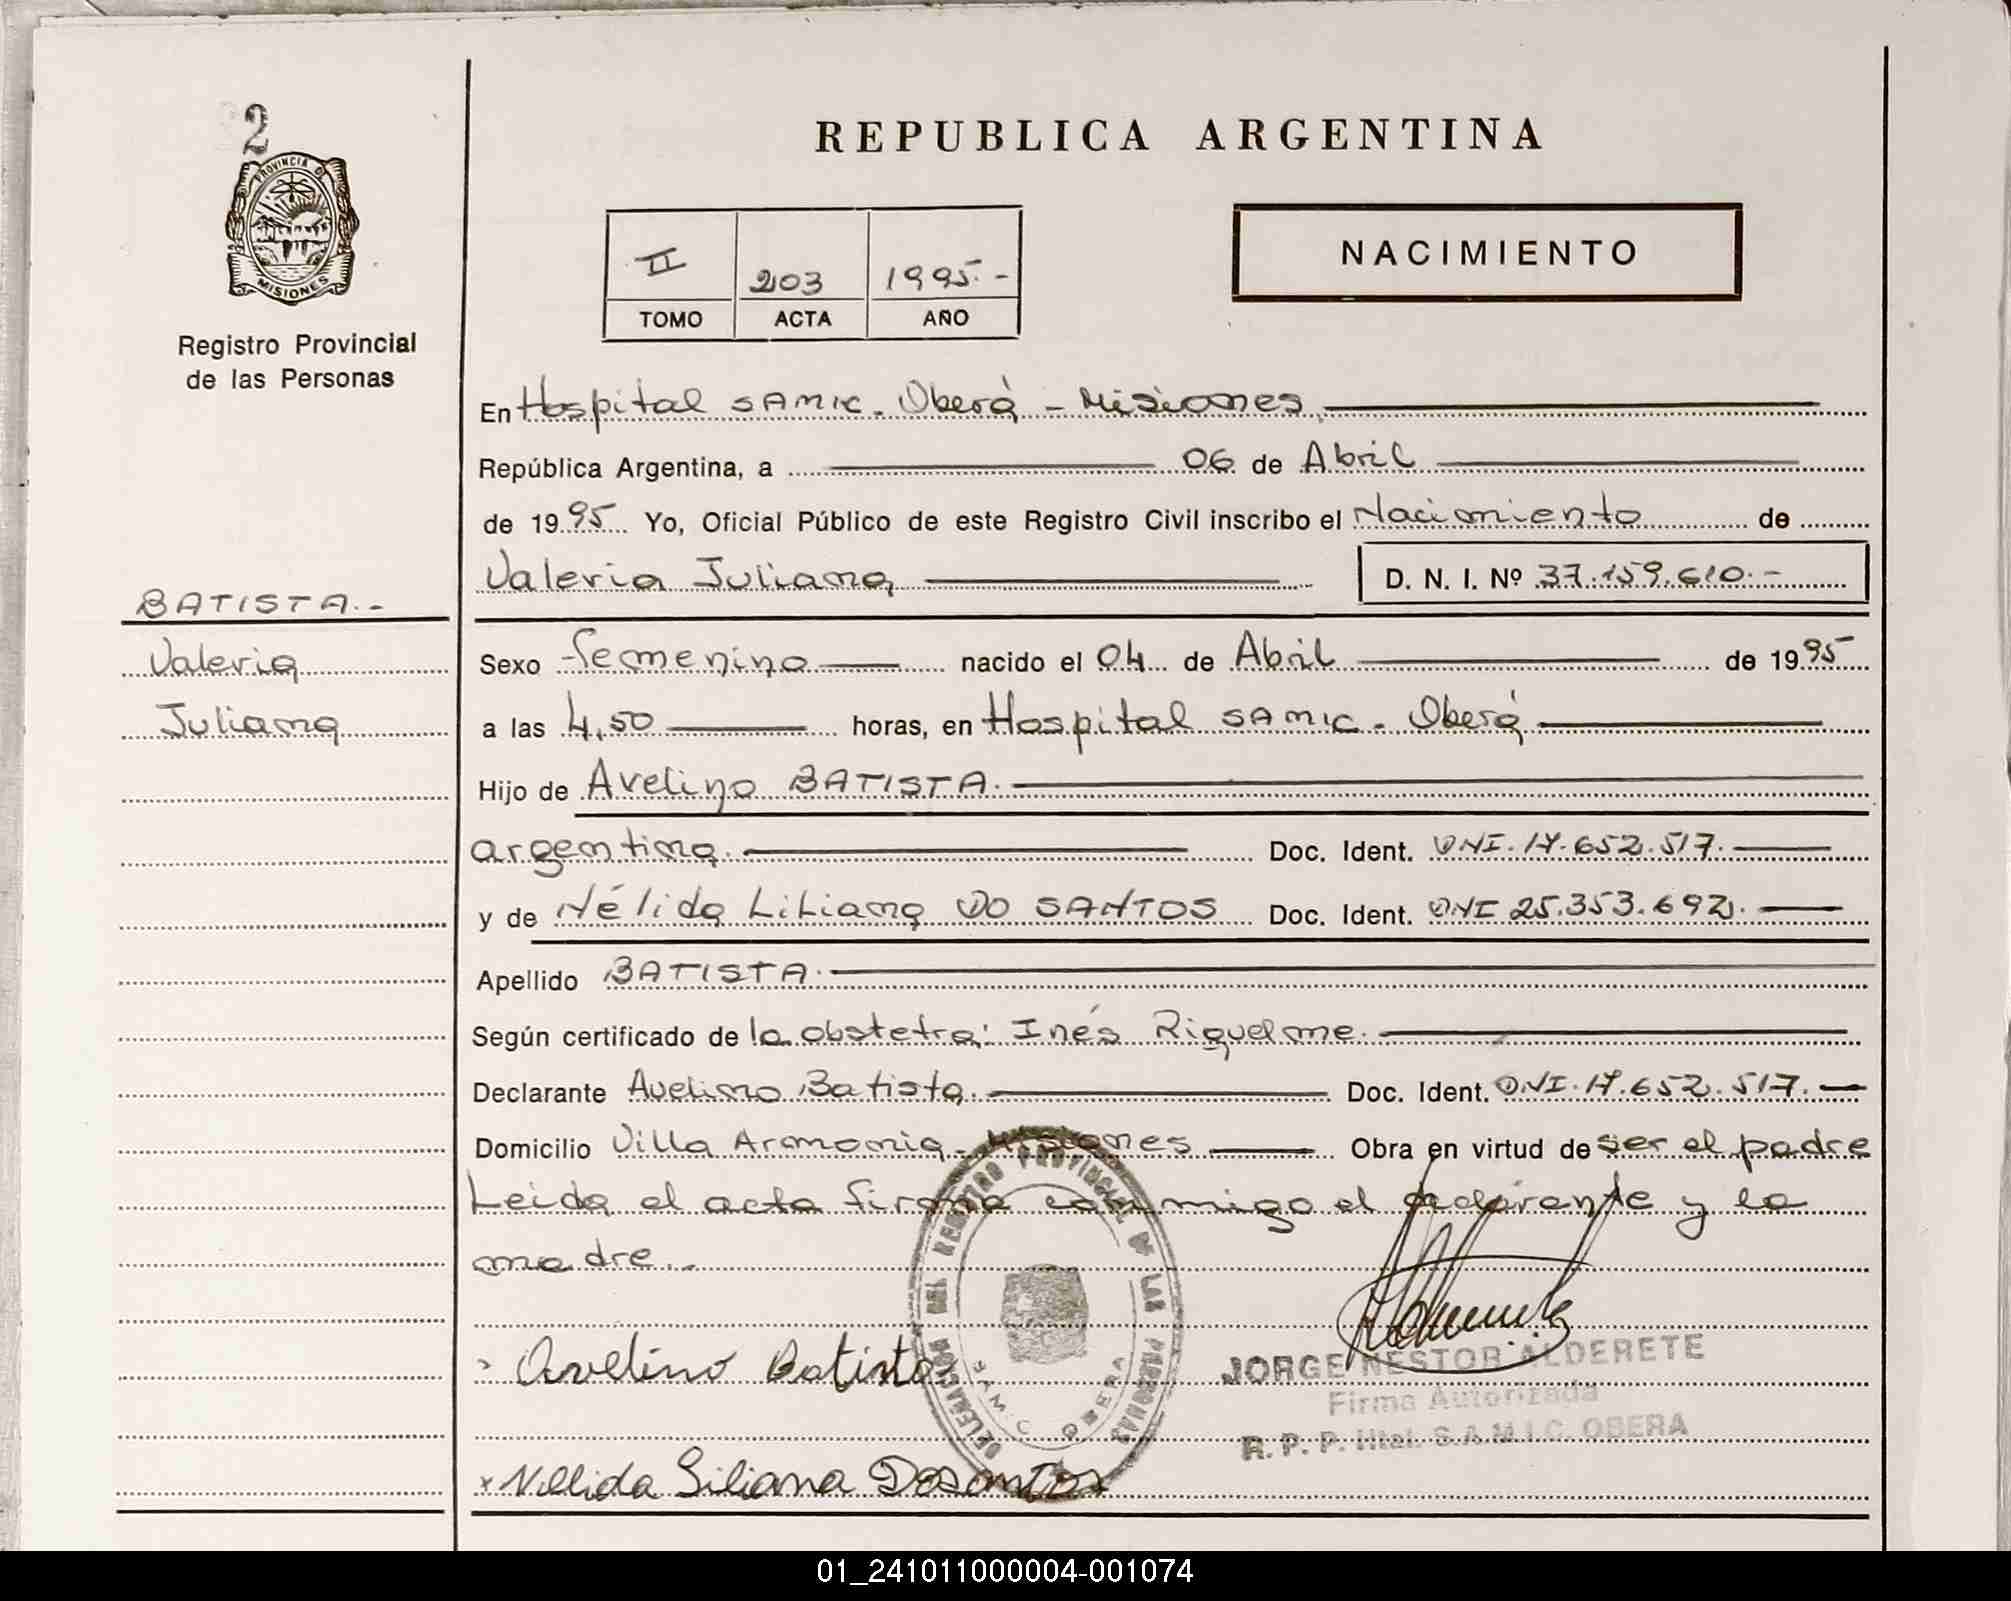 2
PROVINCIA DE
MISIONES
Registro Provincial
de las Personas
REPUBLICA ARGENTINA
II 203 1995.-
TOMO ACTA AÑO
NACIMIENTO
En Hospital SAMIC - Oberá - Misiones
República Argentina, a 06 de Abril
de 1995 Yo, Oficial Público de este Registro Civil inscribo el Nacimiento de
Valeria Juliana D. N. I. Nº 37.159.610.-
BATISTA.-
Valeria
Juliana
Sexo femenino nacido el 04 de Abril de 1995
a las 4,50 horas, en Hospital SAMIC - Oberá
Hijo de Avelino BATISTA.
argentina. Doc. Ident. DNI. 17.652.517.
y de Nélida Liliana DO SANTOS Doc. Ident. DNI 25.353.692.
Apellido BATISTA.
Según certificado de la obstetra: Inés Riquelme.
Declarante Avelino Batista. Doc. Ident. DNI. 17.652.517.
Domicilio Villa Armonia - Misiones Obra en virtud de ser el padre
Leida el acta firma conmigo el declarante y la
madre.-
DELEGACION DEL REGISTRO PROVINCIAL DE LAS PERSONAS
S.A.M.I.C OBERA
Avelino Batista
JORGE NESTOR ALDERETE
Firma Autorizada
R. P. P. Htal. S.A.M.I.C. OBERA
x Nellida Liliana Dosantos
01_241011000004-001074